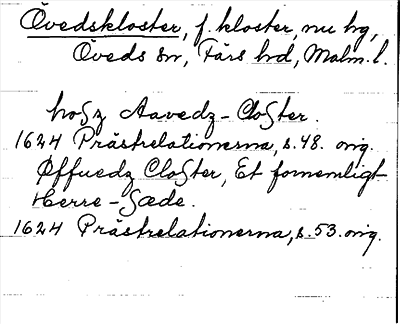 Övedskloster, f. kloster, nu hg,
Öveds sn, Färs hd, Malm. l.
hosz Aavedz-Closter.
1624 Prästrelationerna, s. 48. orig.
Øffuedz Closter, Et fornemligt
Herre-Sæde.
1624 Prästrelationerna, s. 53. orig.